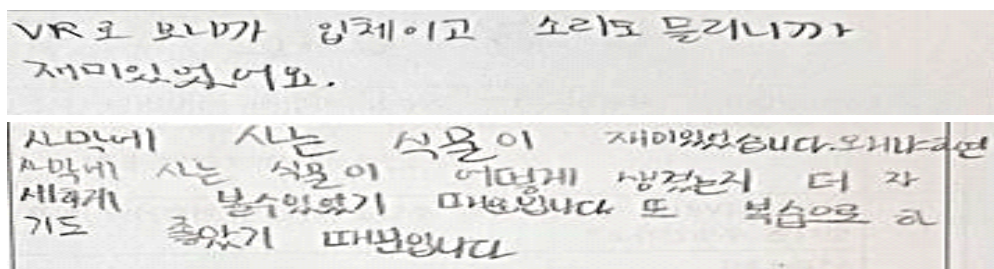 VR로 보니까 입체이고 소리도 들리니까
재미있었어요.
사막에 사는 식물이 재미있었습니다. 왜냐하면
사막에 사는 식물이 어떻게 생겼는지 더 자
세하게 볼수있었기 때문입니다. 또 복습으로 하
기도 좋았기 때문입니다